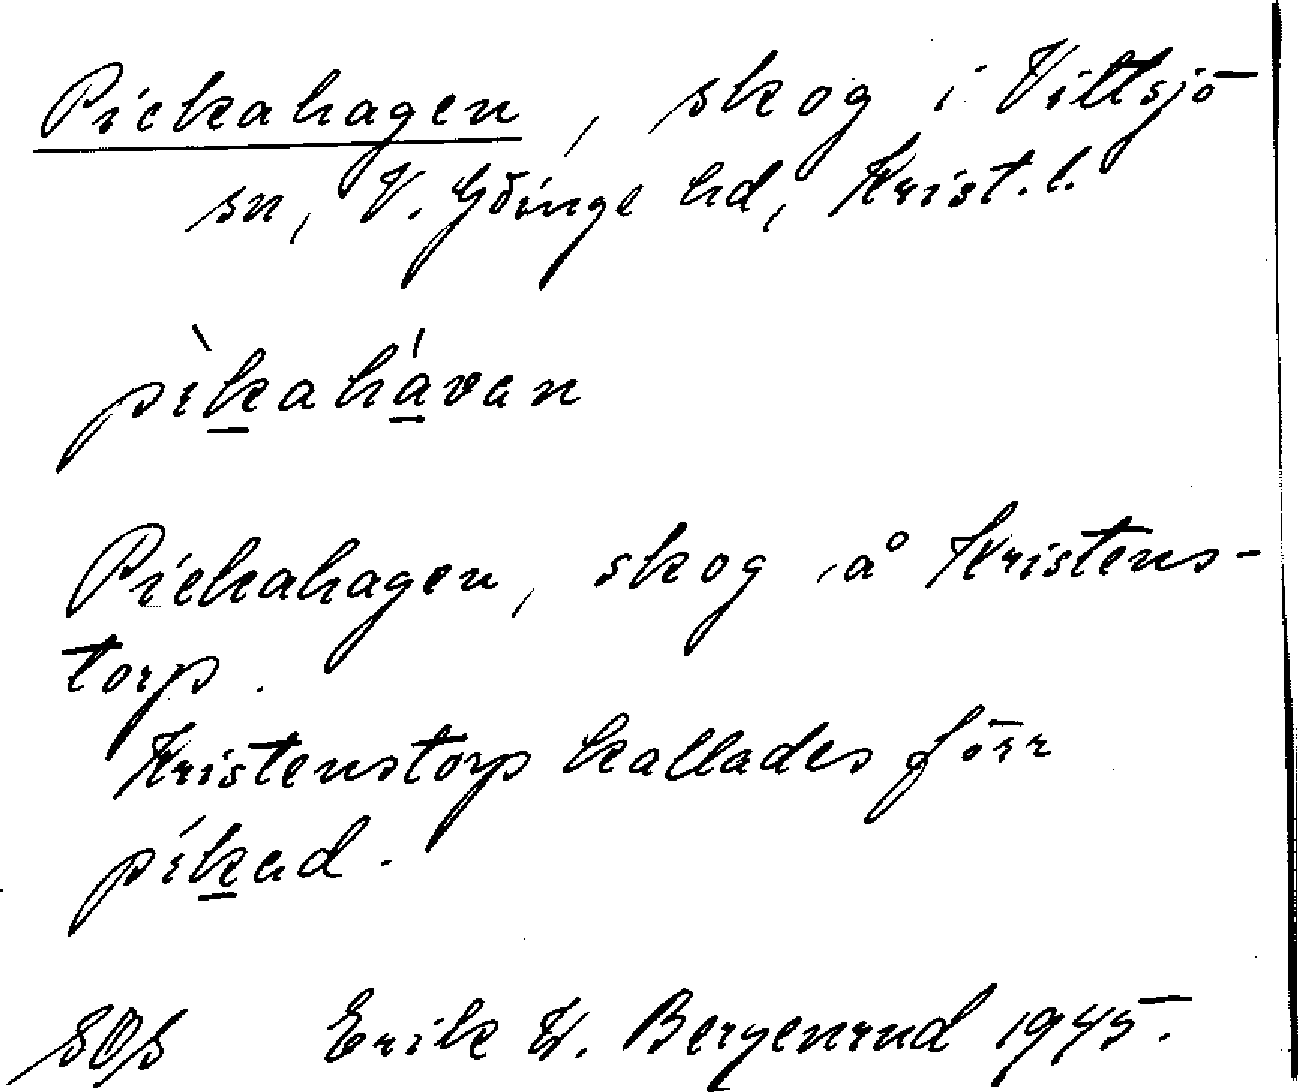 Pickahagen, skog i Vittsjö
sn, V. Göinge hd, Krist. l.
pìkahávan
Pickahagen, skog å Kristens-
torp.
Kristenstorp kallades förr
píkad.
SOS Erik W. Bergenrud 1945.